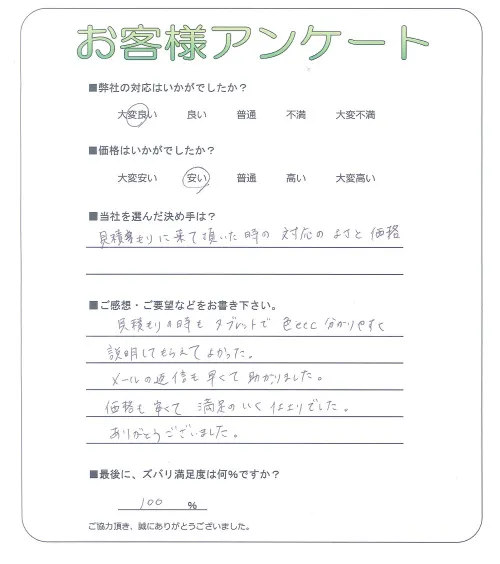 お客様アンケート
■弊社の対応はいかがでしたか？
大変良い 良い 普通 不満 大変不満
■価格はいかがでしたか？
大変安い 安い 普通 高い 大変高い
■当社を選んだ決め手は？
見積もりに来て頂いた時の 対応のよさと価格
■ご感想・ご要望などをお書き下さい。
見積もりの時も タブレットで 色etc 分かりやすく
説明してもらえてよかった。
メールの返信も早くて助かりました。
価格も安くて 満足のいく仕上りでした。
ありがとうございました。
■最後に、ズバリ満足度は何％ですか？
100 ％
ご協力頂き、誠にありがとうございました。